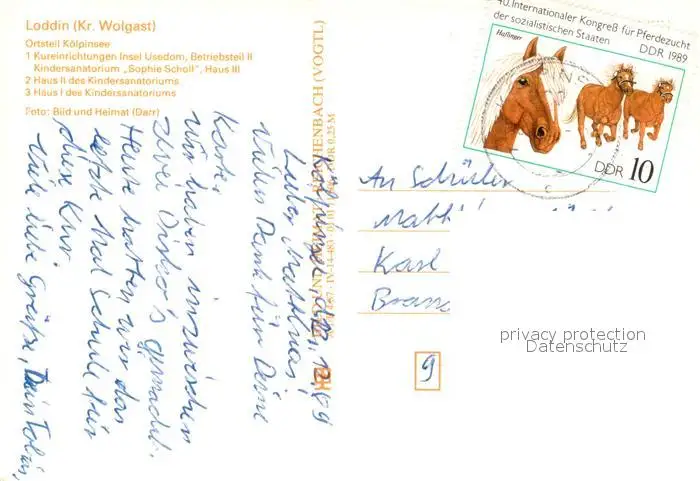 Loddin (Kr. Wolgast)
Ortsteil Kölpinsee
1 Kureinrichtungen Insel Usedom, Betriebsteil II
Kindersanatorium „Sophie Scholl", Haus III
2 Haus II des Kindersanatoriums
3 Haus I des Kindersanatoriums
Foto: Bild und Heimat (Darr)
Kölpinsee, den
Lieber Matthias!
Vielen Dank für Deine
Karte.
Wir haben inzwischen
zwei Disko's gemacht.
Heute hatten wir das
letzte Mal Schule für
diese Kur.
Viele liebe Grüße, Dein Tobias
REICHENBACH (VOGTL)
IV-14-483
40. Internationaler Kongreß für Pferdezucht
der sozialistischen Staaten
DDR 1989
Haflinger
DDR 10
An Schüler
Matt
Karl
Brand
privacy protection
Datenschutz
9